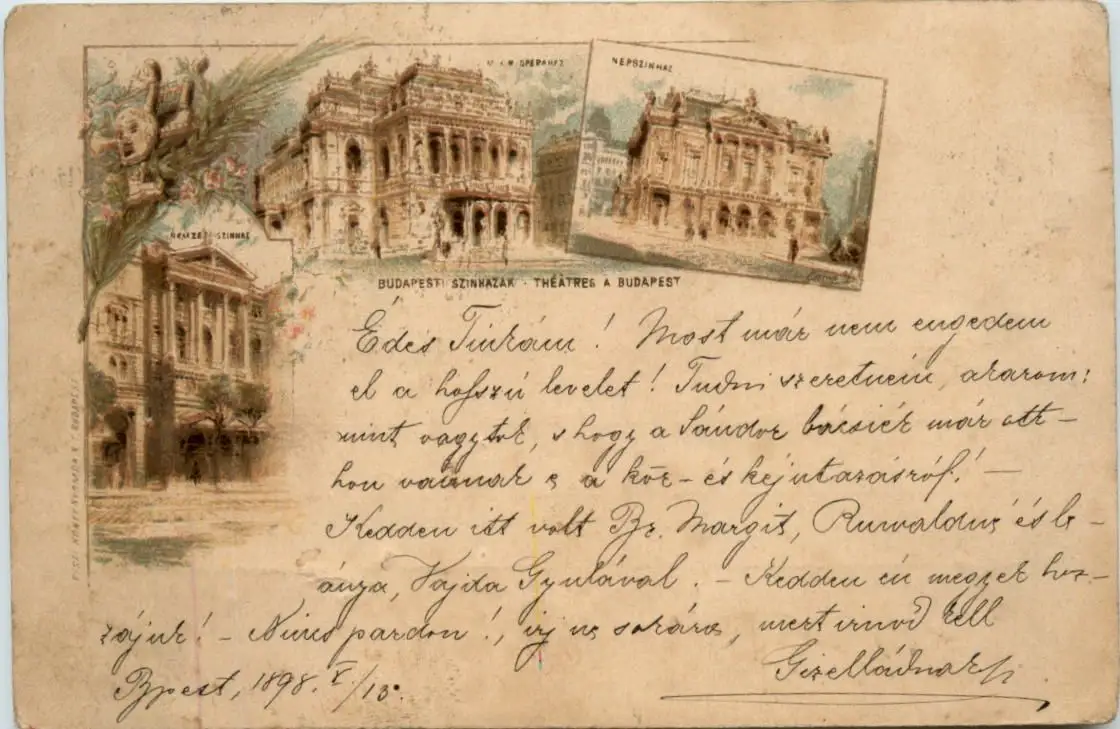 M. KIR. OPERAHÁZ
NÉPSZINHÁZ
NEMZETI SZINHÁZ
BUDAPESTI SZINHÁZAK - THÉÂTRES A BUDAPEST
Édes Tinkám! Most már nem engedem
el a hosszú levelet! Tudni szeretném, akarom:
mint vagytok, s hogy a Sándor bácsiék már ott-
hon vannak e a kör- és kéjutazásról! -
Kedden itt volt Br. Margit, Ruwaldné és le-
ánya, Vajda Gyulával. - Kedden én megyek hoz-
zájuk! - Nincs pardon!, irj ne sokára, mert irnod kell
Gizelládnak
Bpest, 1898. V/15.